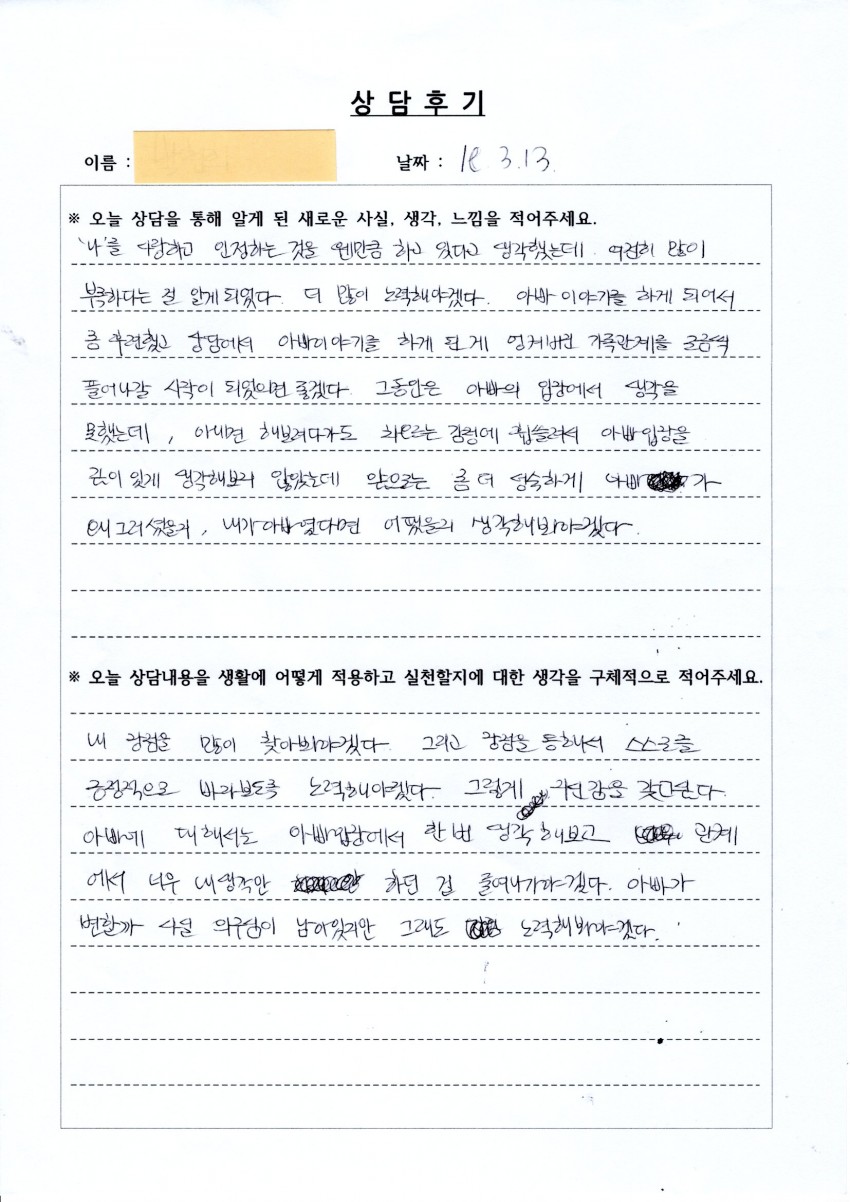 상 담 후 기
이름 :
날짜 : 18. 3. 13.
※ 오늘 상담을 통해 알게 된 새로운 사실, 생각, 느낌을 적어주세요.
'나'를 사랑하고 인정하는 것을 웬만큼 하고 있다고 생각했는데 여전히 많이
부족하다는 걸 알게되었다. 더 많이 노력해야겠다. 아빠 이야기를 하게 되어서
좀 후련했고 상담에서 아빠이야기를 하게 된 게 엉켜버린 가족관계를 조금씩
풀어나갈 시작이 되었으면 좋겠다. 그동안은 아빠의 입장에서 생각을
못했는데, 아니면 해보려다가도 화오르는 감정에 휩쓸려서 아빠입장을
깊이 있게 생각해보지 않았는데 앞으로는 좀 더 성숙하게 아빠가
왜 그러셨을지, 내가 아빠였다면 어땠을지 생각해봐야겠다.
※ 오늘 상담내용을 생활에 어떻게 적용하고 실천할지에 대한 생각을 구체적으로 적어주세요.
내 강점을 많이 찾아봐야겠다. 그리고 강점을 통해서 스스로를
긍정적으로 바라보도록 노력해야겠다. 그렇게 자신감을 갖고싶다.
아빠에 대해서는 아빠입장에서 한번 생각해보고 관계
에서 너무 내생각만 하던 걸 줄여나가야겠다. 아빠가
변할까 사실 의구심이 남아있지만 그래도 노력해봐야겠다.